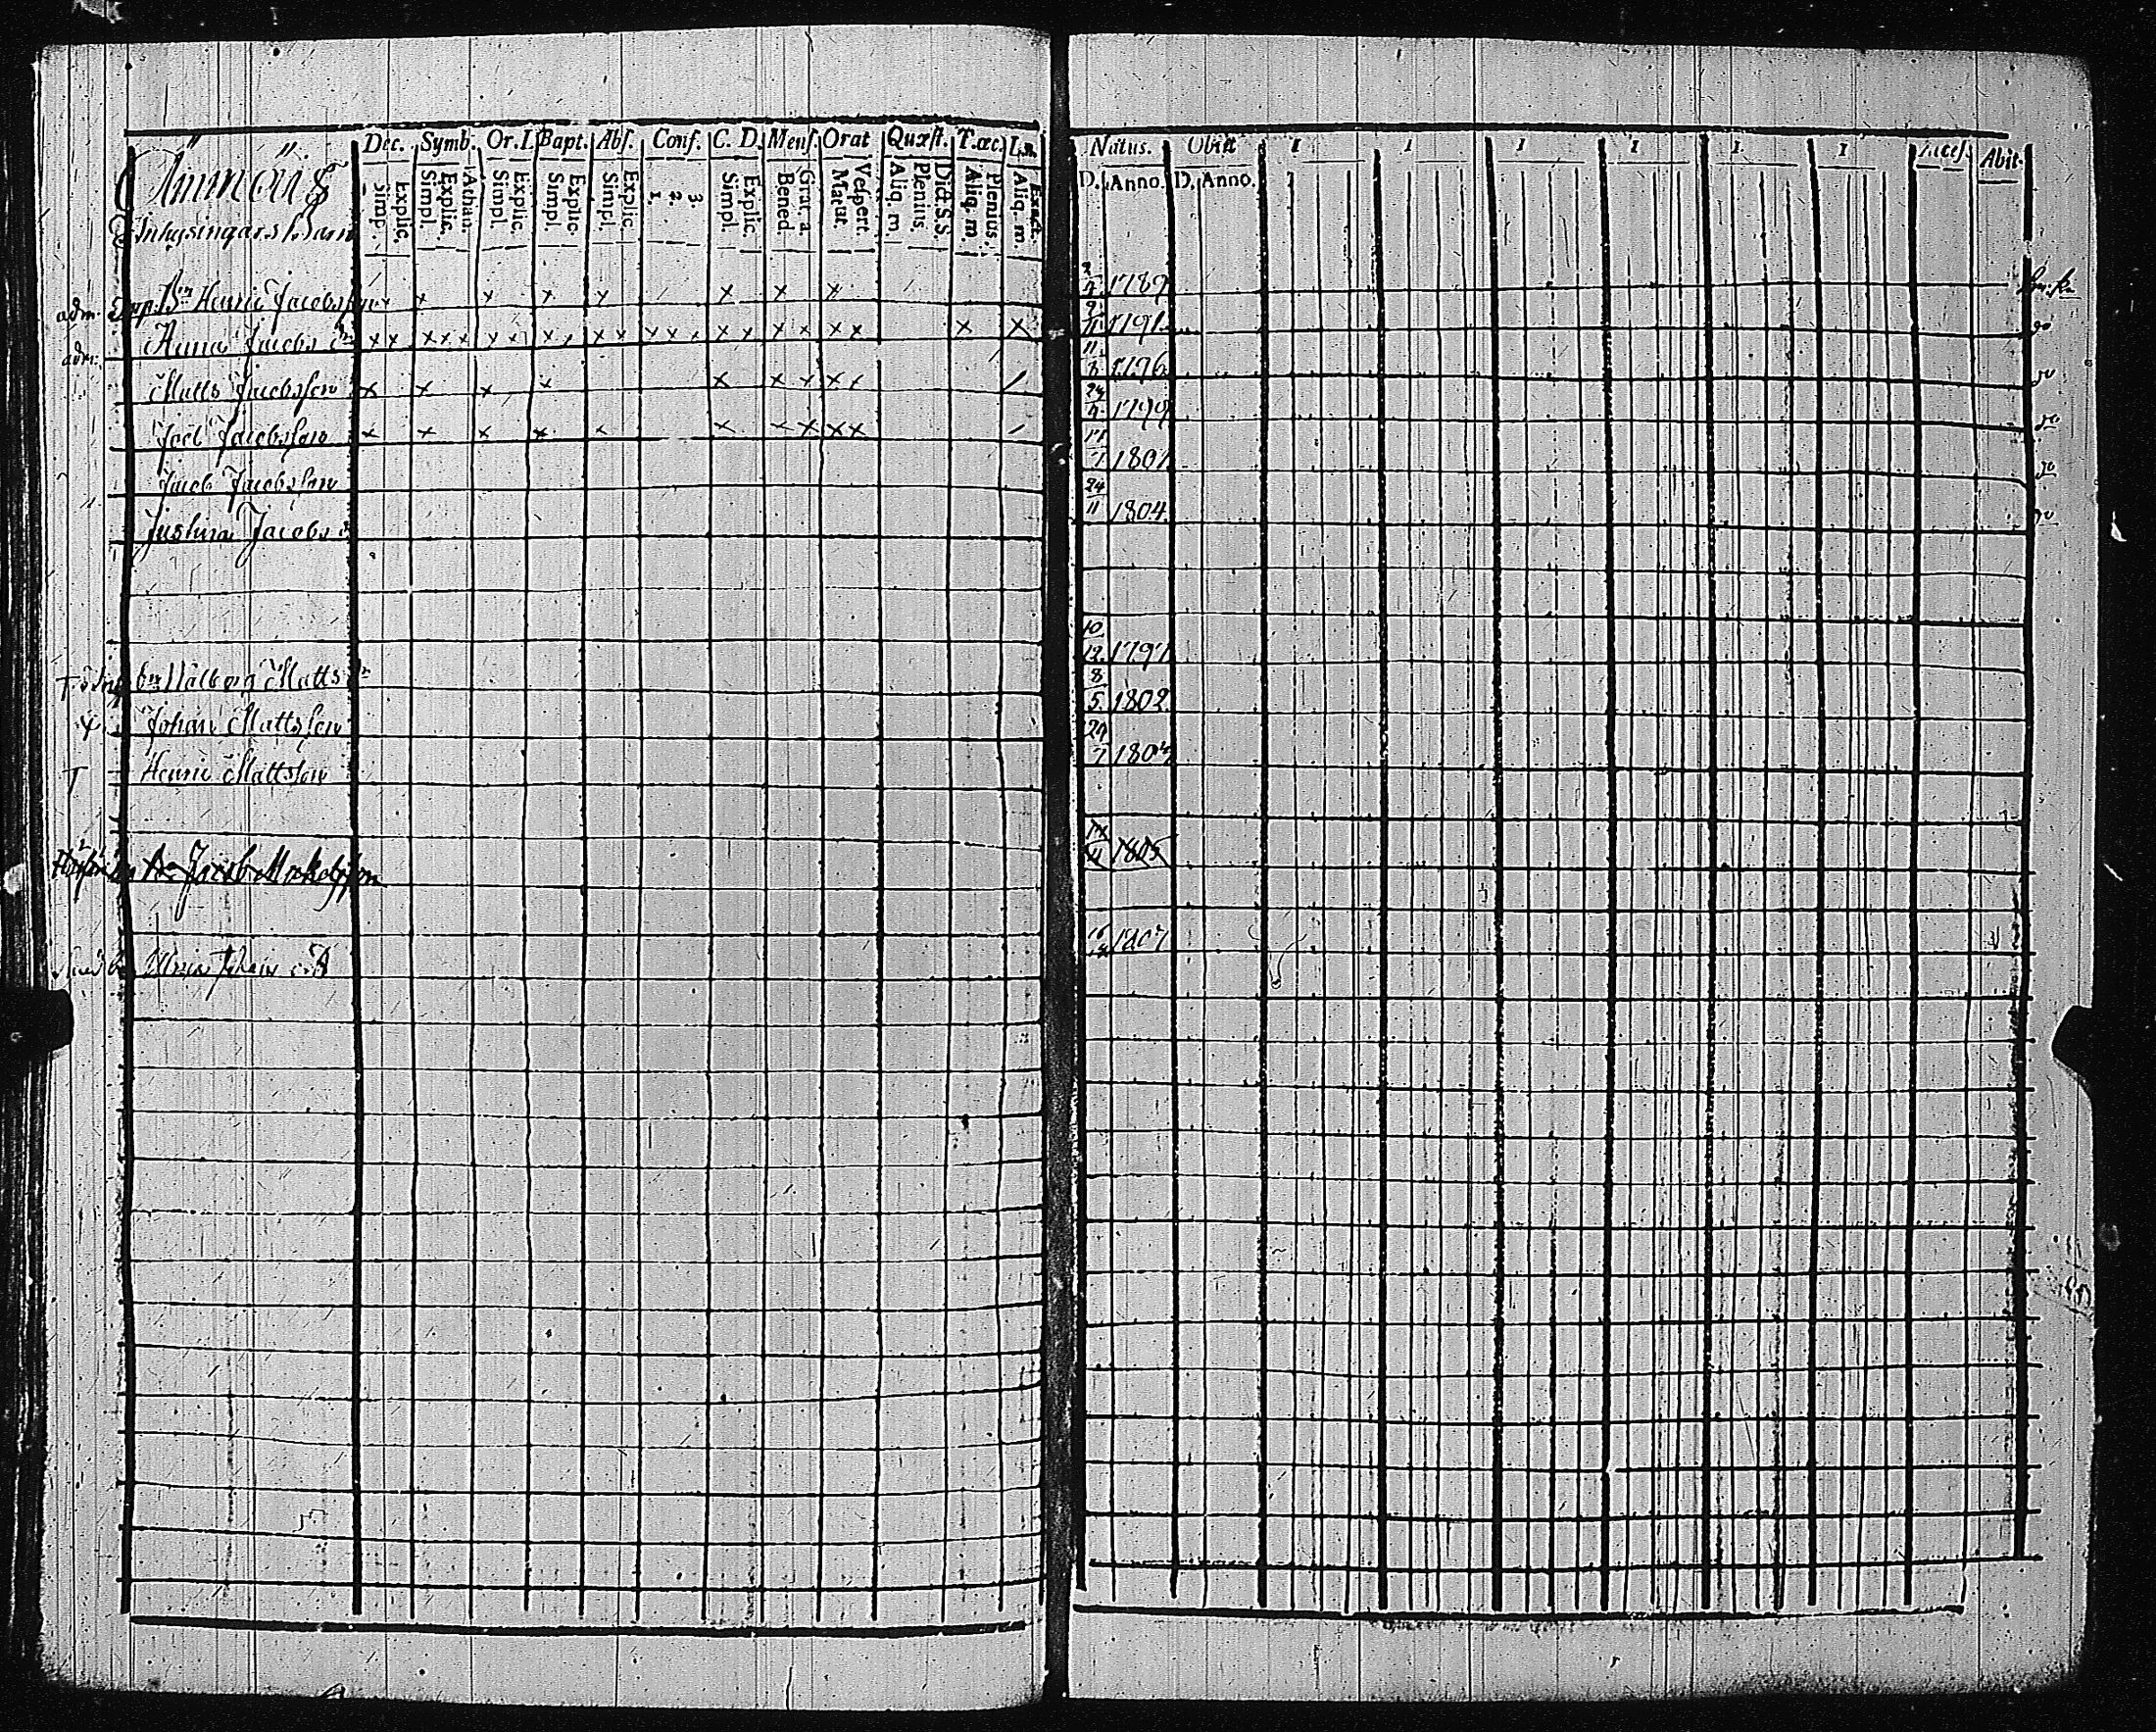 Dec. Symb. Or. I. Bapt. Abſ. Conf. C. D. Menſ. Orat Quæſt. T. æc.
Simpl. Explic. Simpl. Explic. Athan. Simpl. Explic. Simpl. Explic. Simpl. Explic. 1. 2. 3. Simpl. Explic. Bened. Grat. a Matut. Veſpert. Aliq. m. Plenius. Dict. S.S. Aliq. m. Plenius. Aliq. m. Exact.
Natus. Obiit I I I I I I Abit.
D. Anno. D. Anno.
Ämmäis
Inhysingars Barn
adm. Henric Jacobsson x x x x x x x 1789
adm. Anna Jacobs dr x x x x x x x x x x x x x x x x x x x x x 9 11 1791 do
Matts Jacobsson x x x x x x x x x 11 8 1796 do
Joel Jacobsson x x x x x x x x x x 24 1799 do
Jacob Jacobsson 1801 do
Justina Jacobs dr 24 11 1804 do
Walborg Matts dr 10 12 1797
Johan Mattsson 8 5 1802
Henric Mattsson 29 7
Jacob Michelsson 1805
1807